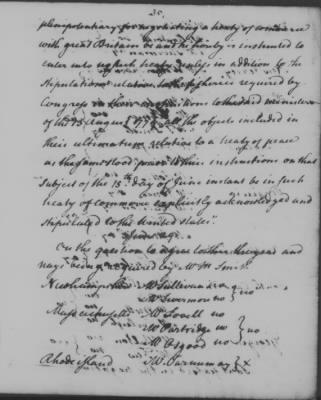 35
plenipotentiary for negotiating a treaty of commerce
with great Britain be and he hereby is instructed to
enter into no such treaty unless in addition to the
Stipulations relative to the fisheries required by
Congress in their instructions to the said minister
of the 13 August 1779 all the objects included in
their ultimatum relative to a treaty of peace
as the same stood prior to their instructions on that
Subject of the 15th day of June instant be in such
treaty of commerce explicitly acknowledged and
stipulated to the United States".
On the question to agree to this the yeas and
nays being required by Mr M Smith
New hampshire Mr Sullivan
Mr Livermore no } no
Massachusetts Mr Lovell no
Mr Partridge no } no
Mr Osgood no
Rhode island Mr Varnum ay } x